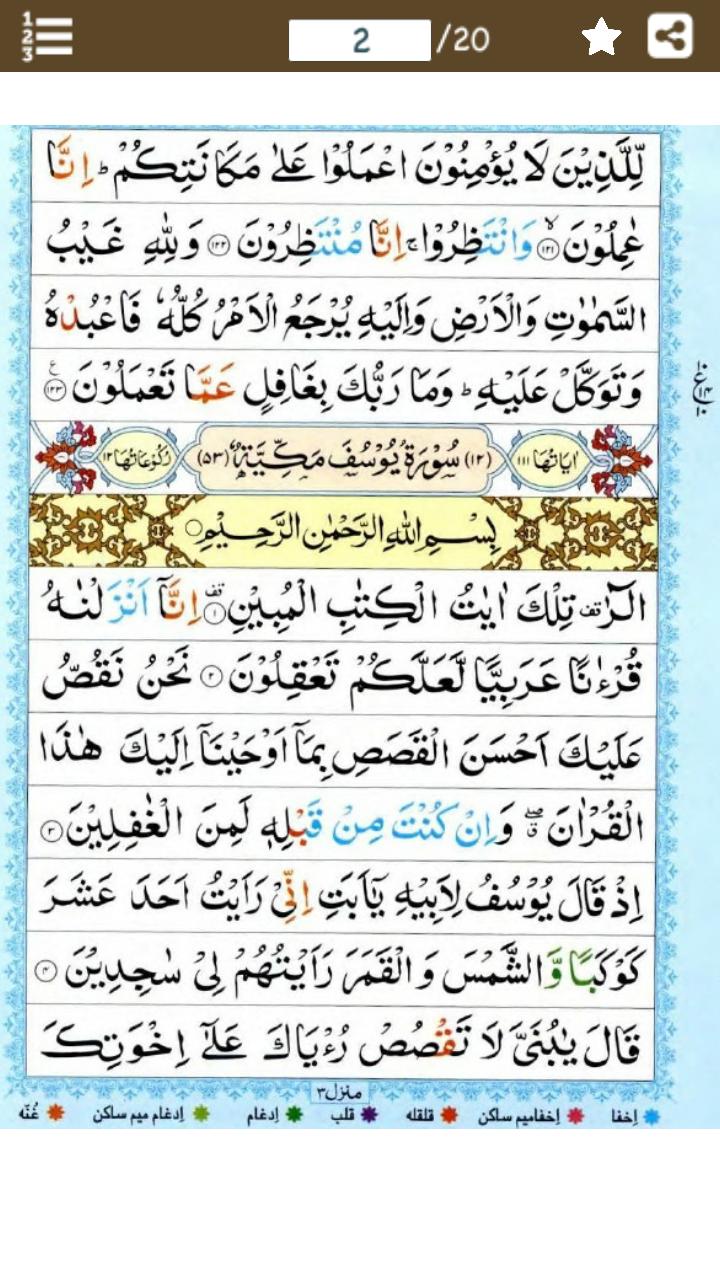 1
2
3
2 /20
لِّلَّذِيْنَ لَا يُؤْمِنُوْنَ اعْمَلُوْا عَلٰى مَكَانَتِكُمْ ؕ اِنَّا
عٰمِلُوْنَ ۙ﴿۱۲۱﴾ وَانْتَظِرُوْا ۚ اِنَّا مُنْتَظِرُوْنَ ﴿۱۲۲﴾ وَلِلّٰهِ غَيْبُ
السَّمٰوٰتِ وَالْاَرْضِ وَاِلَيْهِ يُرْجَعُ الْاَمْرُ كُلُّهٗ فَاعْبُدْهُ
وَتَوَكَّلْ عَلَيْهِ ؕ وَمَا رَبُّكَ بِغَافِلٍ عَمَّا تَعْمَلُوْنَ ﴿۱۲۳﴾ ع
اٰيَاتُهَا ۱۱۱ (۱۲) سُوْرَةُ يُوْسُفَ مَكِّيَّةٌ (۵۳) رُكُوْعَاتُهَا ۱۲
بِسْمِ اللّٰهِ الرَّحْمٰنِ الرَّحِيْمِ ○
الٓرٰ ࣞ تِلْكَ اٰيٰتُ الْكِتٰبِ الْمُبِيْنِ ﴿۱﴾ قف اِنَّاۤ اَنْزَلْنٰهُ
قُرْءٰنًا عَرَبِيًّا لَّعَلَّكُمْ تَعْقِلُوْنَ ﴿۲﴾ نَحْنُ نَقُصُّ
عَلَيْكَ اَحْسَنَ الْقَصَصِ بِمَاۤ اَوْحَيْنَاۤ اِلَيْكَ هٰذَا
الْقُرْاٰنَ ۖق وَاِنْ كُنْتَ مِنْ قَبْلِهٖ لَمِنَ الْغٰفِلِيْنَ ﴿۳﴾
اِذْ قَالَ يُوْسُفُ لِاَبِيْهِ يٰۤاَبَتِ اِنِّيْ رَاَيْتُ اَحَدَ عَشَرَ
كَوْكَبًا وَّالشَّمْسَ وَالْقَمَرَ رَاَيْتُهُمْ لِيْ سٰجِدِيْنَ ﴿۴﴾
قَالَ يٰبُنَيَّ لَا تَقْصُصْ رُءْيَاكَ عَلٰۤى اِخْوَتِكَ
منزل ۳
اِخفا اِخفامیم ساکن قلقله قلب اِدغام اِدغام میم ساکن غُنّه